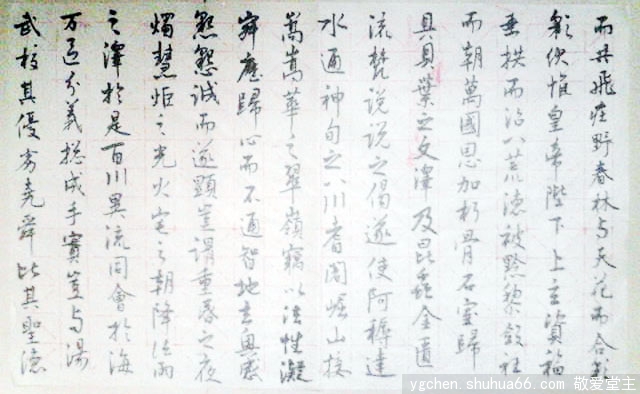 而共飛莊野春林与天花而合彩
彩伏惟皇帝陛下上玄資福
垂拱而治八荒德被黔黎斂衽
而朝萬國恩加朽骨石室歸
貝貝葉之文澤及昆蟲金匱
流梵說說之偈遂使阿耨達
水通神甸之八川耆闍崛山接
嵩嵩華之翠嶺竊以法性凝
寂靡歸心而不通智地玄奧感
懇懇誠而遂顯豈謂重昏之夜
燭慧炬之光火宅之朝降法雨
之澤於是百川異流同會於海
万区分義揔成乎實豈与湯
武校其優劣堯舜比其聖德
ygchen.shuhua66.com 敬爱堂主